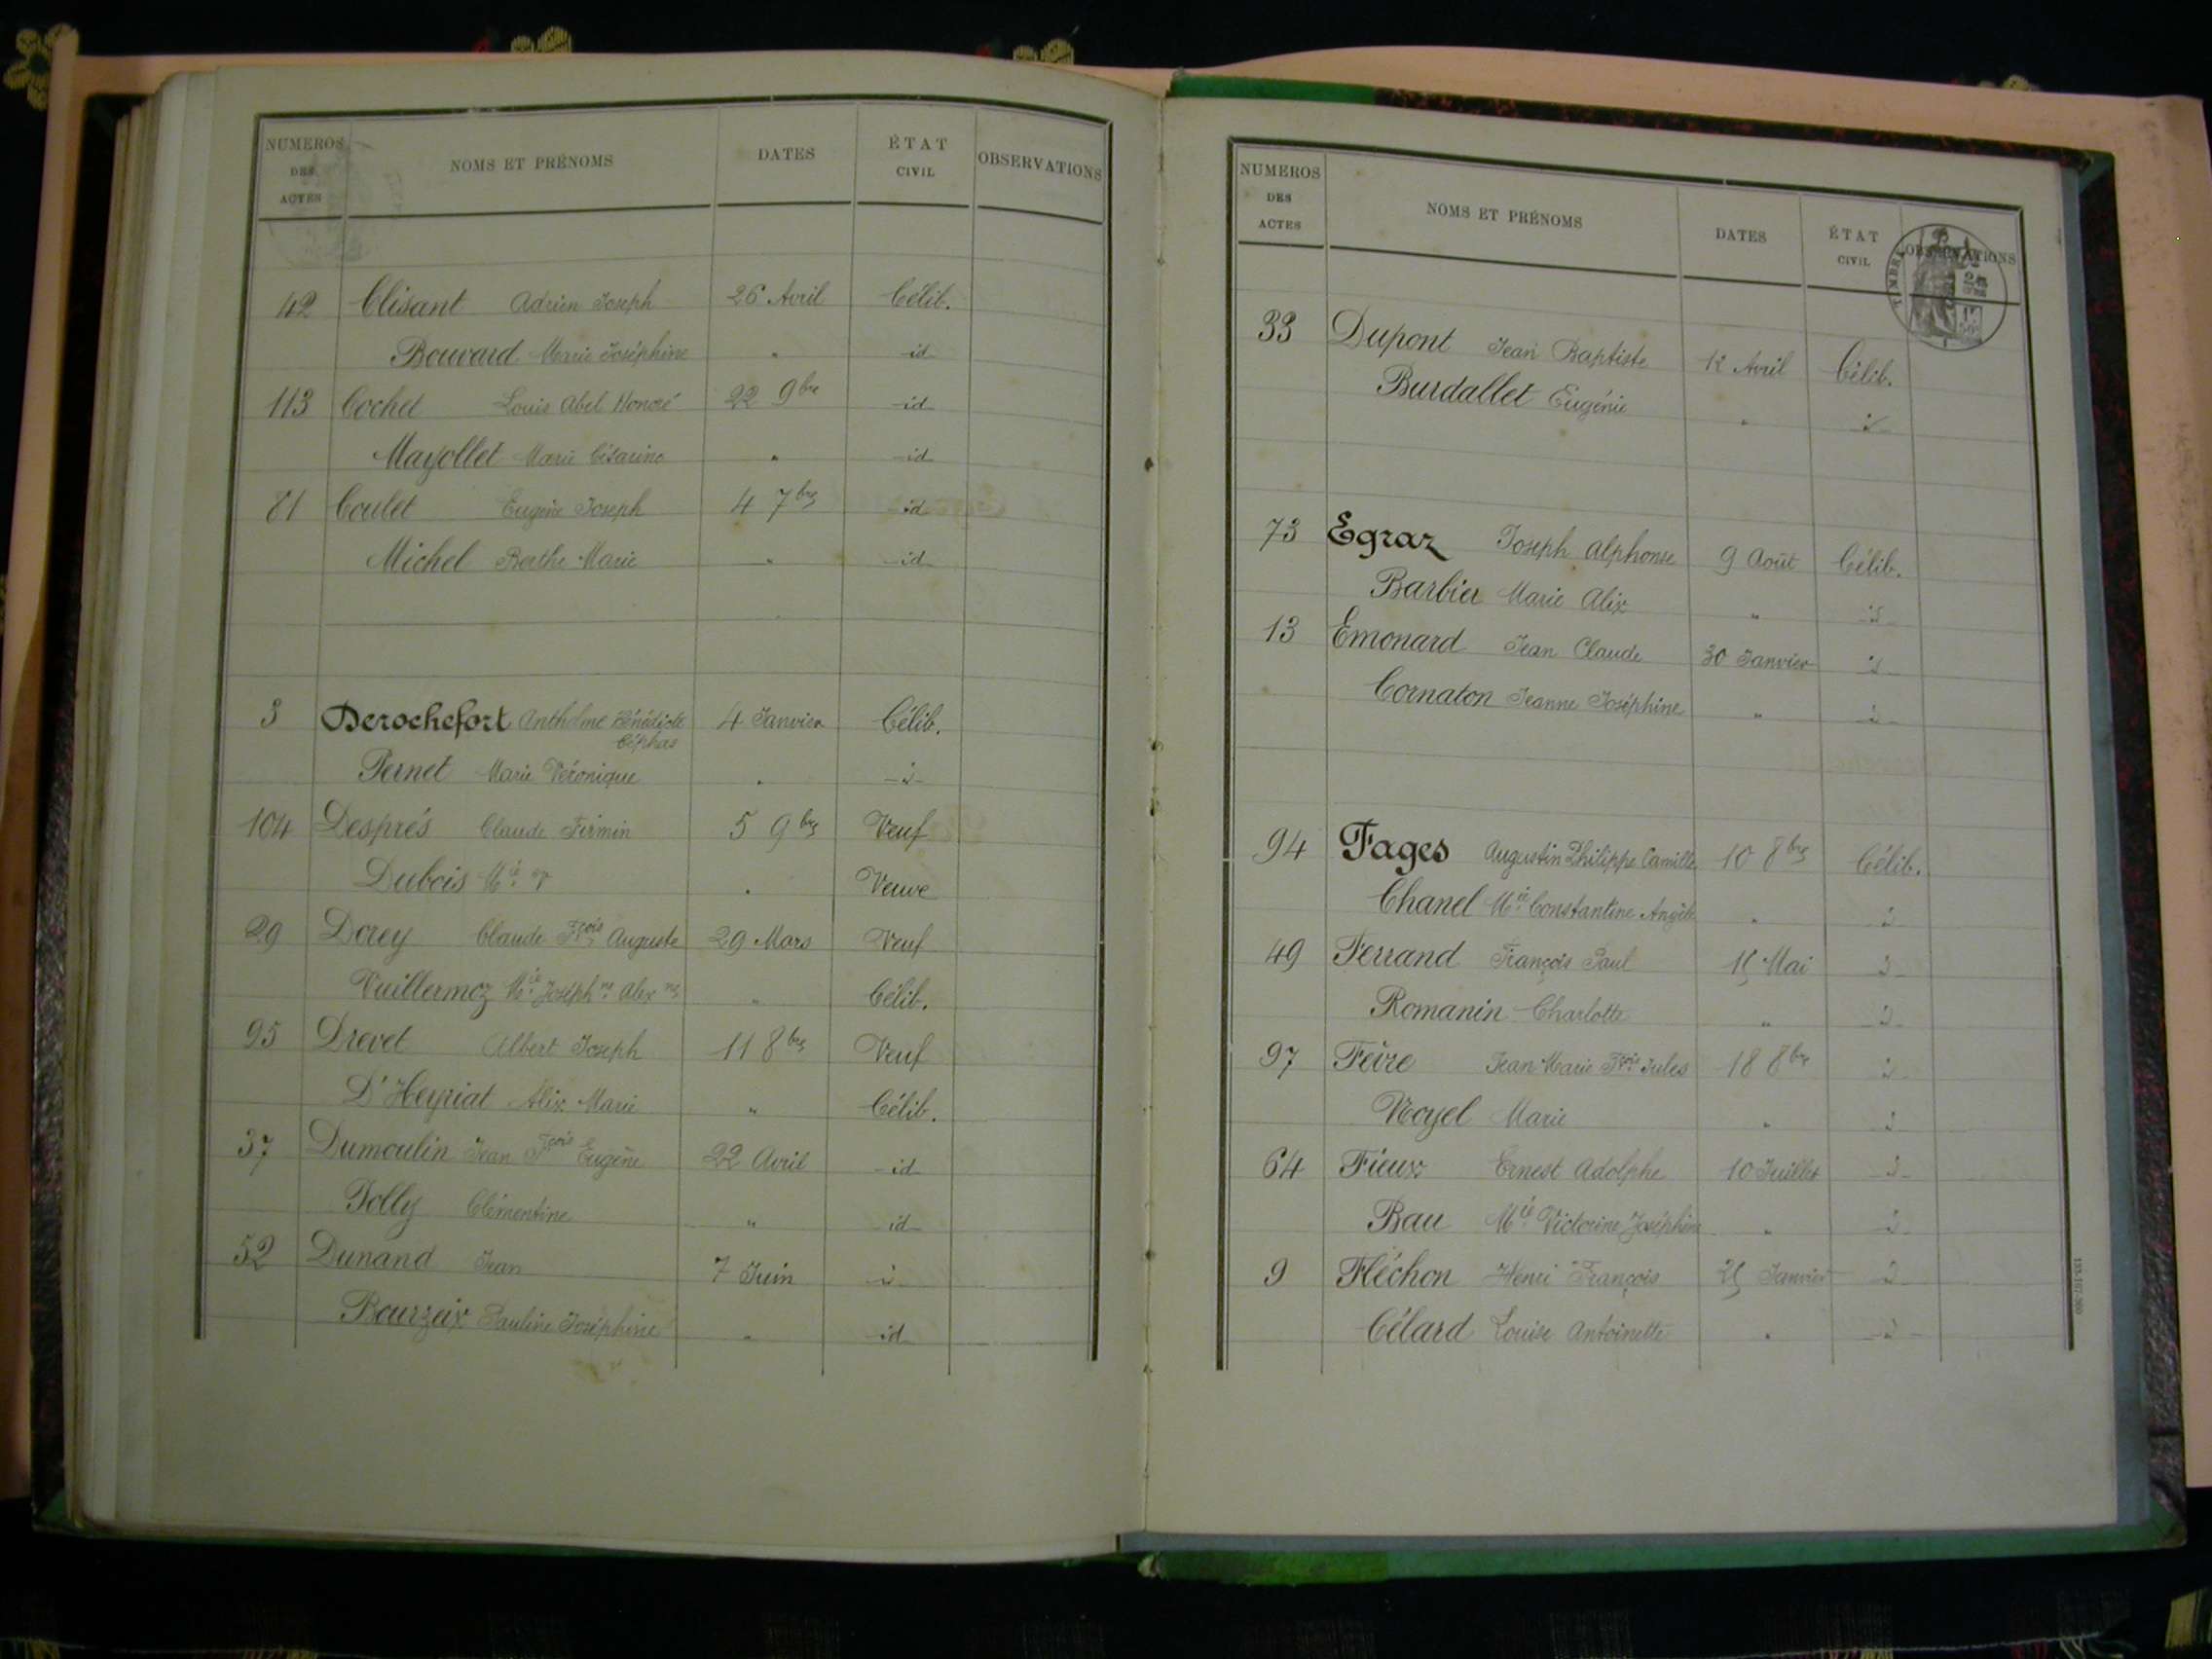 NUMEROS DES ACTES NOMS ET PRÉNOMS DATES ÉTAT CIVIL OBSERVATIONS
42 Clisant Adrien Joseph 26 Avril Célib.
Bouvard Marie Joséphine " id
113 Cochet Louis Abel Honoré 22 9bre id
Mayollet Marie Césarine " id
81 Coulet Eugène Joseph 4 7bre id
Michel Berthe Marie " id
3 Derochefort Anthelme Bénédicte 4 Janvier Célib.
Céphas
Pernet Marie Véronique " id
104 Després Claude Firmin 5 9bre Veuf
Dubois Mie " Veuve
29 Dorey Claude Fçois Auguste 29 Mars Veuf
Vuillermoz Mie Josephne Alexne " Célib.
95 Drevet Albert Joseph 11 8bre Veuf
D'Heyriat Alix Marie " Célib.
37 Dumoulin Jean Fçois Eugène 22 Avril id
Jolly Clémentine " id
52 Dunand Jean 7 Juin id
Bourzeix Pauline Joséphine " id
NUMEROS DES ACTES NOMS ET PRÉNOMS DATES ÉTAT CIVIL OBSERVATIONS
TIMBRE
33 Dupont Jean Baptiste 12 Avril Célib.
Burdallet Eugénie " id
73 Egraz Joseph Alphonse 9 Août Célib.
Barbier Marie Alix " id
13 Emonard Jean Claude 30 Janvier id
Cornaton Jeanne Joséphine " id
94 Fages Augustin Philippe Camille 10 8bre Célib.
Chanel Mie Constantine Angèle " id
49 Ferrand François Paul 15 Mai id
Romanin Charlotte " id
97 Fèvre Jean Marie Fçois Jules 18 8bre id
Noyel Marie " id
64 Fieux Ernest Adolphe 10 Juillet id
Bau Mie Victorine Joséphine " id
9 Fléchon Henri François 25 Janvier id
Célard Louise Antoinette " id